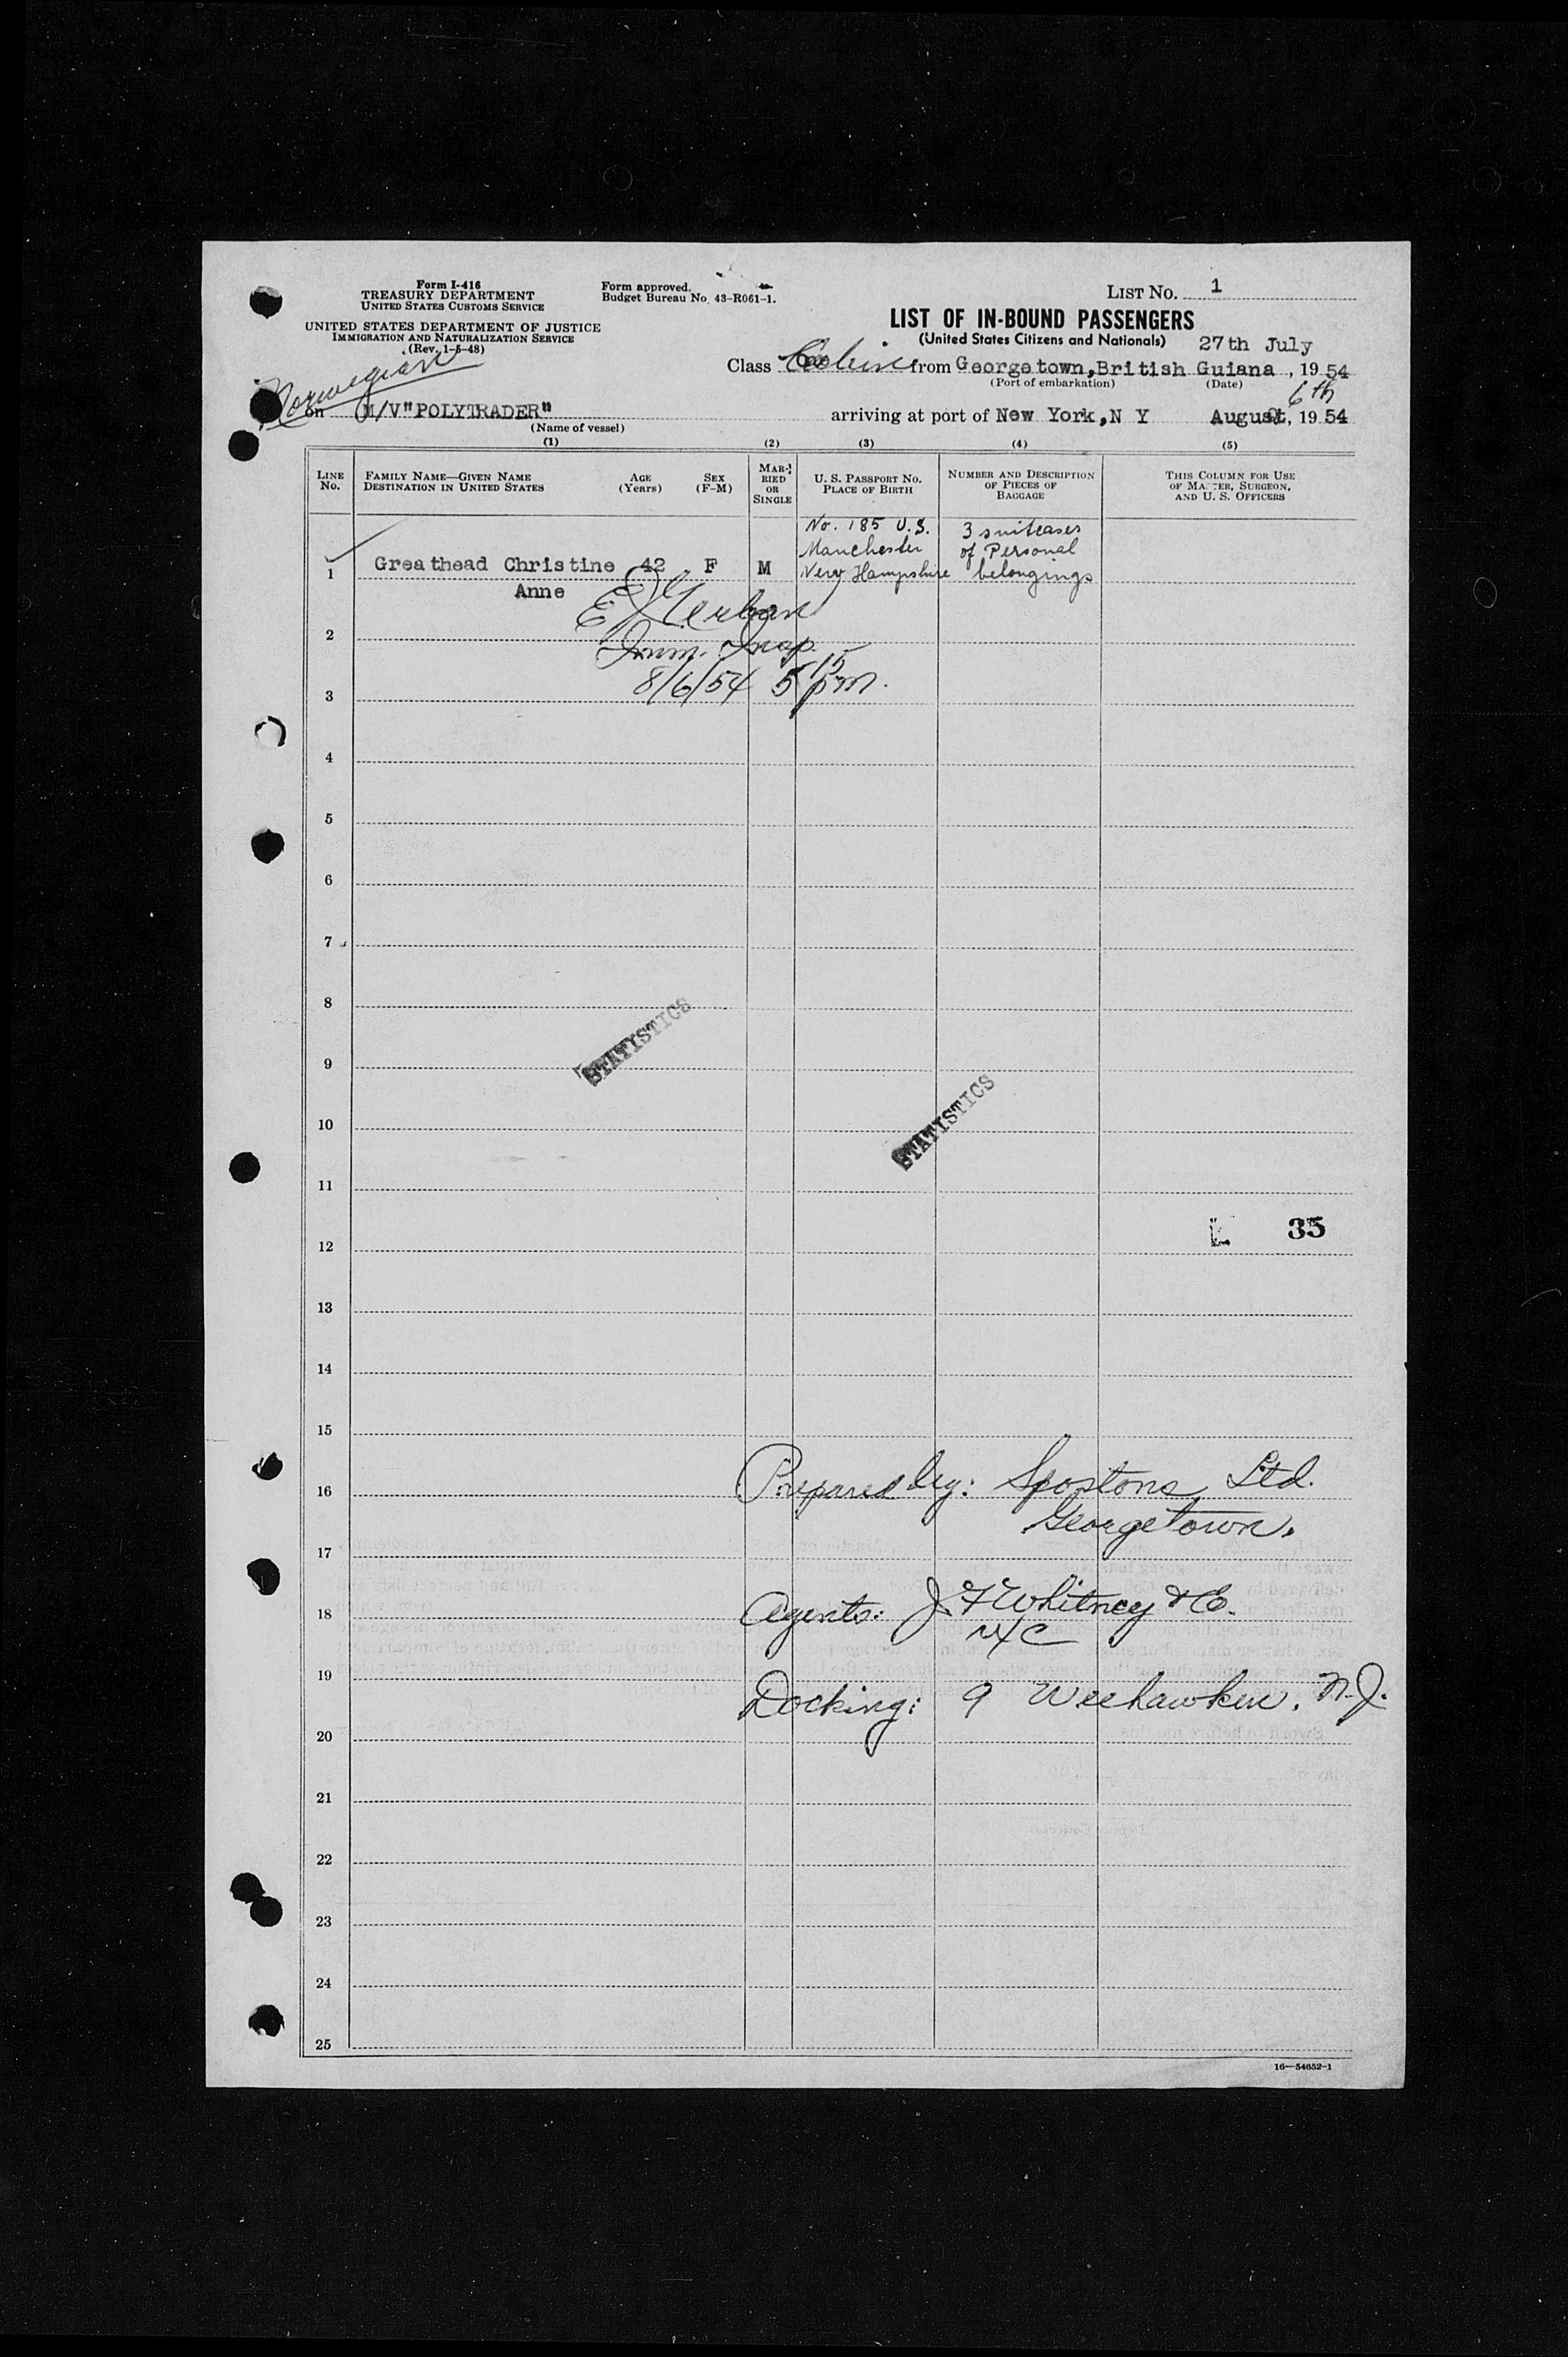 Form I-416
TREASURY DEPARTMENT
UNITED STATES CUSTOMS SERVICE
UNITED STATES DEPARTMENT OF JUSTICE
IMMIGRATION AND NATURALIZATION SERVICE
(Rev. 1-5-48)
Form approved.
Budget Bureau No. 43-R061-1.
LIST NO. 1
LIST OF IN-BOUND PASSENGERS
(United States Citizens and Nationals)
27th July
Class Cabin from Georgetown, British Guiana, 19 54
(Port of embarkation) (Date)
Norwegian
6th
on M/V "POLYTRADER" arriving at port of New York, N Y August, 19 54
(Name of vessel)
(1) (2) (3) (4) (5)
LINE No. FAMILY NAME—GIVEN NAME DESTINATION IN UNITED STATES AGE (Years) SEX (F-M) MARRIED OR SINGLE U. S. PASSPORT No. PLACE OF BIRTH NUMBER AND DESCRIPTION OF PIECES OF BAGGAGE THIS COLUMN FOR USE OF MASTER, SURGEON, AND U. S. OFFICERS
No. 185 U.S. 3 suitcases
Manchester of Personal
1 Greathead Christine 42 F M New Hampshire belongings
Anne
E
2 Imm. Insp.
3 8/6/54 5 15 pm.
4
5
6
7
8
STATISTICS
9
STATISTICS
10
11
12 35
13
14
15
16 Prepared by: Ltd.
Georgetown.
17
18 Agents: J. F Whitney & Co.
NYC
19 Docking: 9 Weehawken, N.J.
20
21
22
23
24
25
16—54652-1